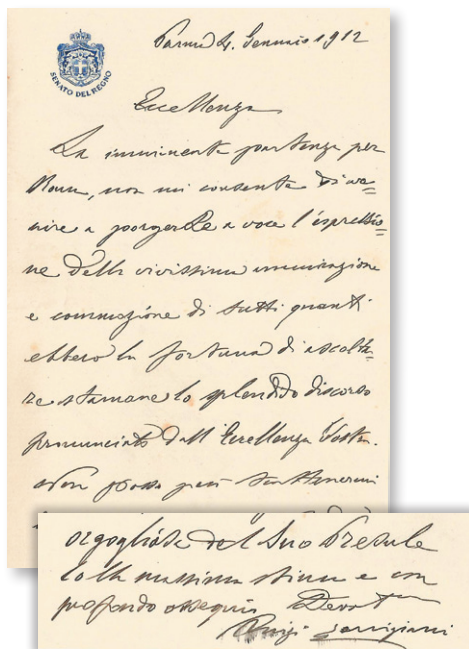 SENATO DEL REGNO
Parma 4. Gennaio 1912
Eccellenza
La imminente partenza per
Roma, non mi consente di ve=
nire a porgerLe a voce l'espressio=
ne della vivissima ammirazione
e commozione di tutti quanti
ebbero la fortuna di ascolta=
re stamane lo splendido discorso
pronunciato dall'Eccellenza Vostra.
Non posso però trattenermi
orgogliosa del Suo Presule
Colla massima stima e con
profondo ossequio Devotmo
Luigi